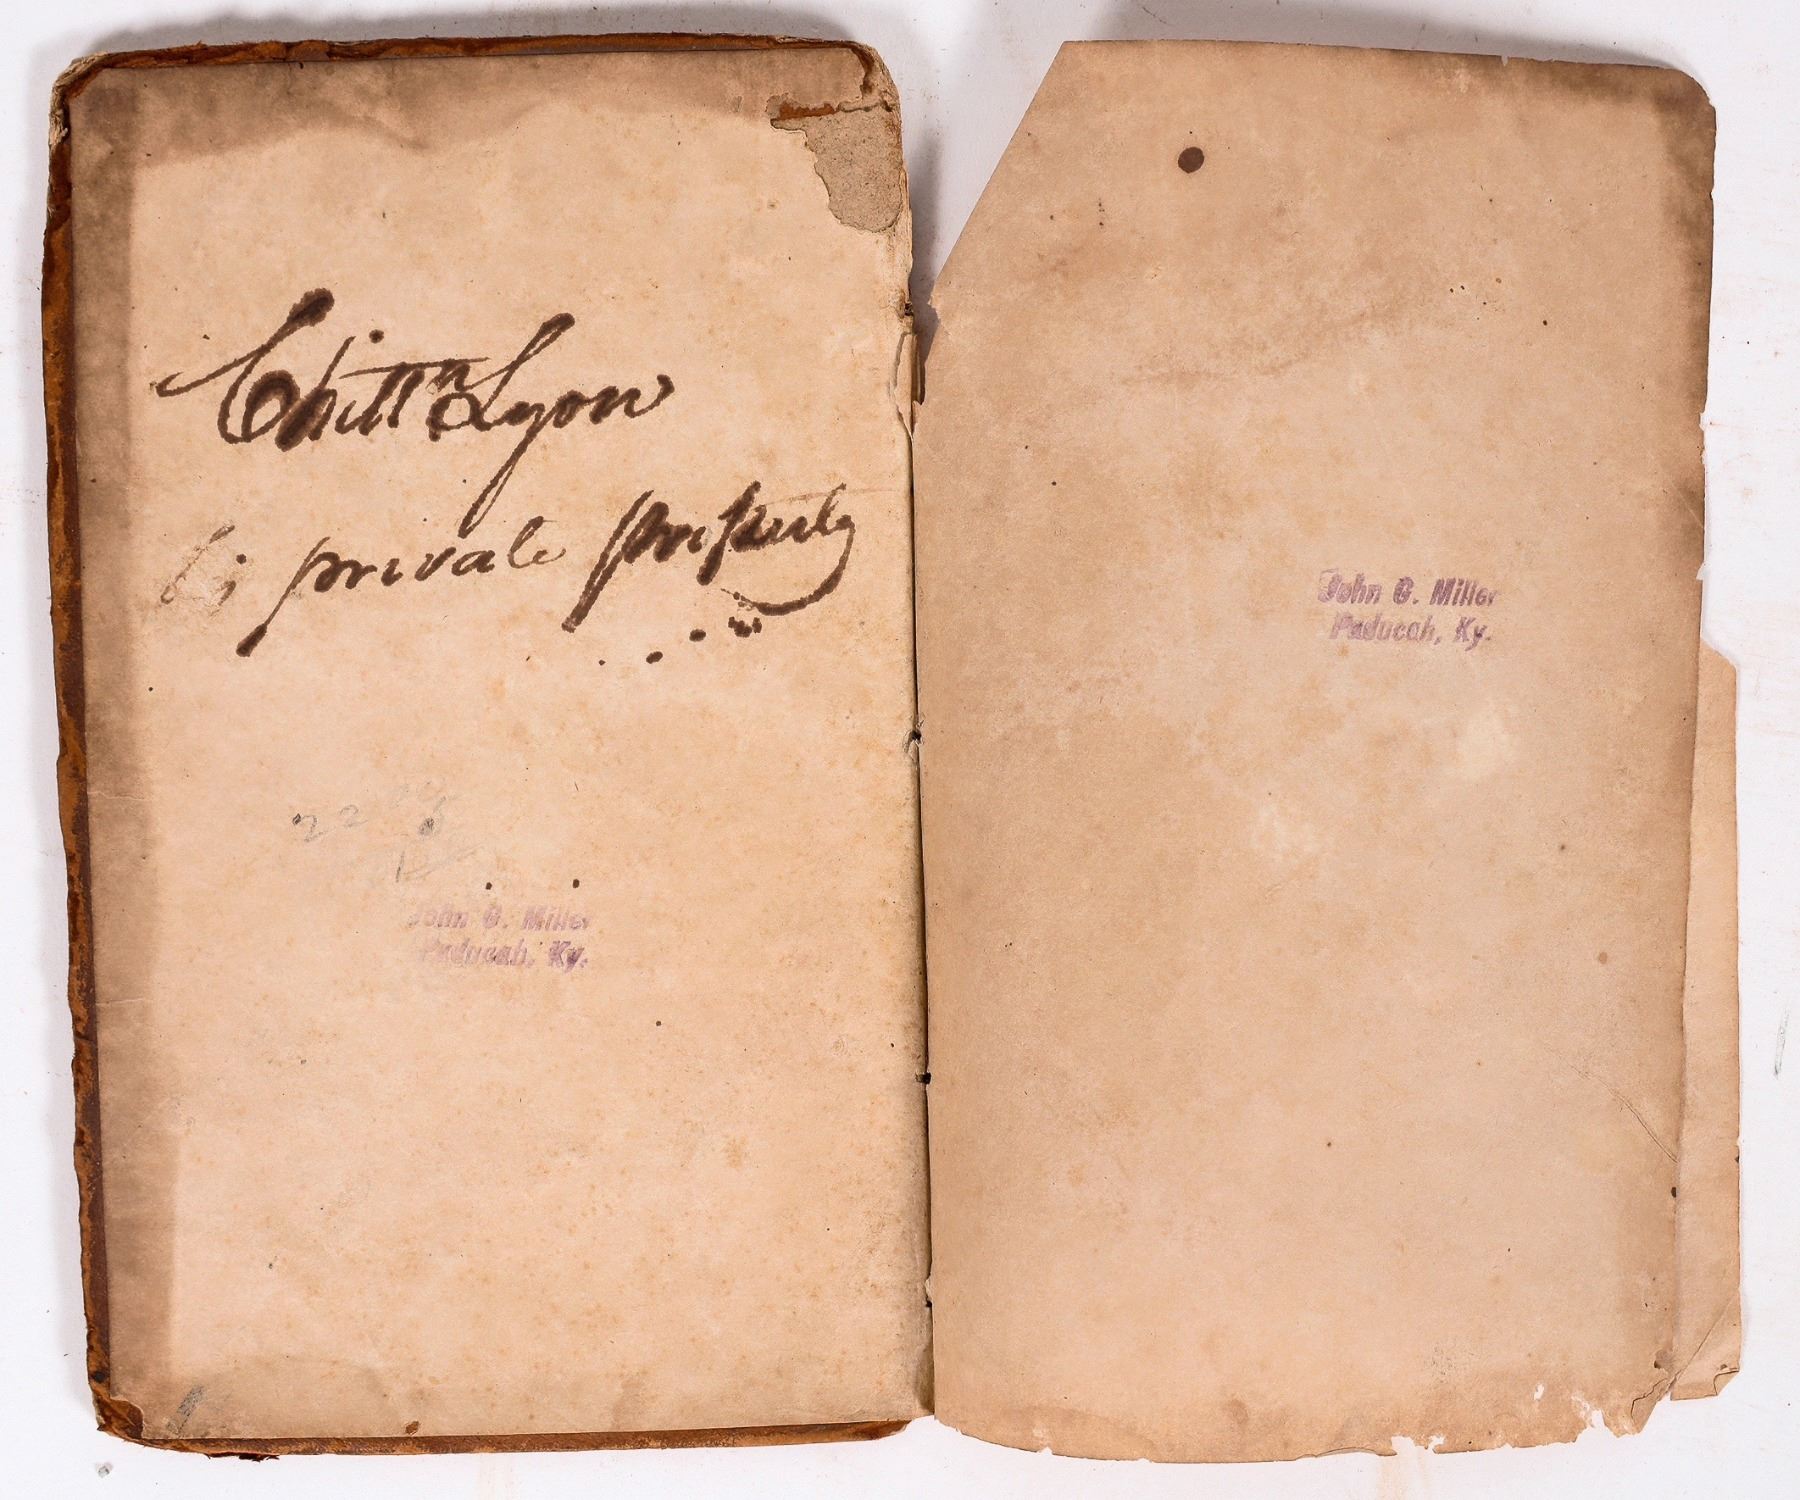 Chittn Lyon
private property
22
John G. Miller
Paducah, Ky.
John G. Miller
Paducah, Ky.